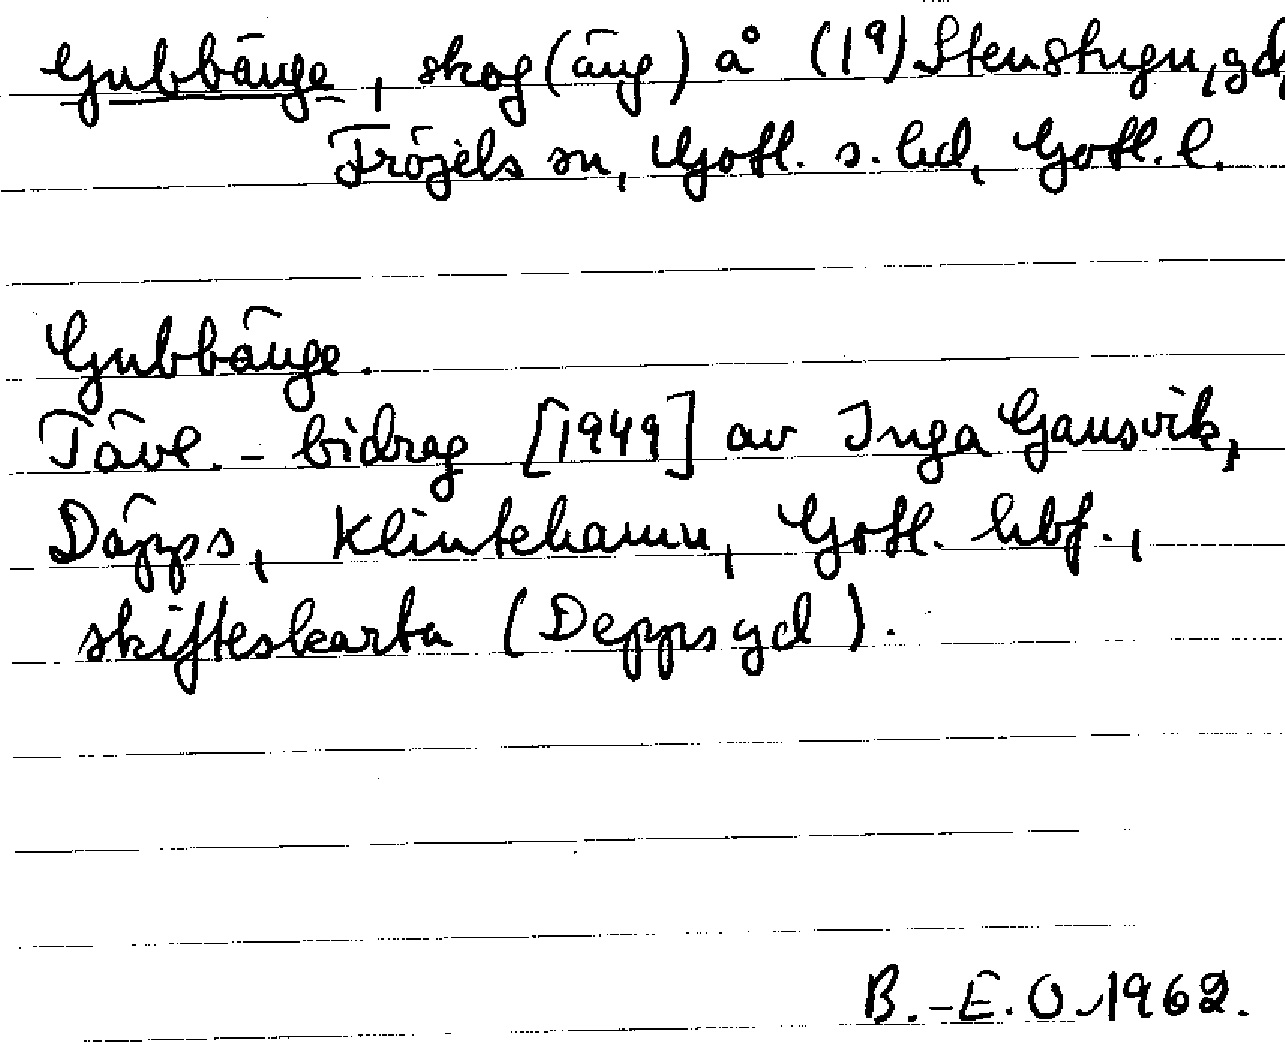 Gubbänge, skog (äng) å (1⁹) Stenstugu, gd,
Fröjels sn, Gotl. s. hd, Gotl. l.
Gubbänge.
Tävl.-bidrag [1949] av Inga Gansvik,
Däpps, Klintehamn, Gotl. hbf.,
skifteskarta (Deppsgd).
B.-E. O. 1962.